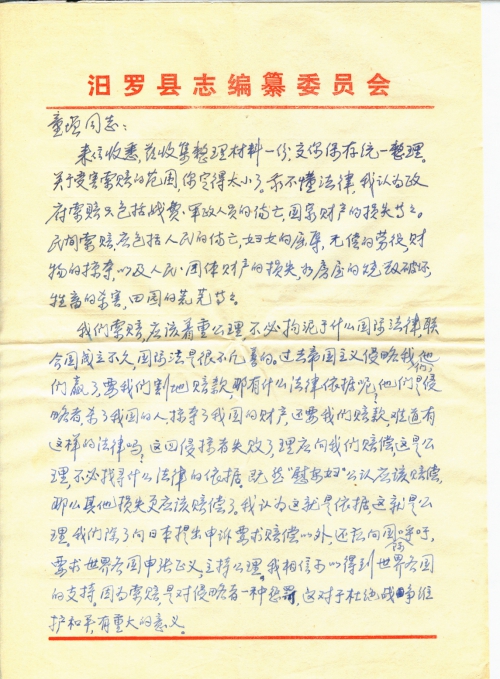 汨罗县志编纂委员会
童增同志：
来信收悉，兹收集整理材料一份，交你保存统一整理。
关于受害索赔的范围，你定得太小了。我不懂法律，我认为政
府索赔只包括战费、军政人员的伤亡，国家财产的损失等等。
民间索赔，应包括人民的伤亡，妇女的屈辱，无偿的劳役，财
物的掠夺，以及人民、团体财产的损失，如房屋的烧毁破坏，
牲畜的杀害，田园的荒芜等等。
我们索赔，应该着重公理，不必拘泥于什么国际法律，联
合国成立不久，国际法是很不完善的。过去帝国主义侵略我们，他
们赢了，要我们割地赔款，那有什么法律依据呢？他们是侵
略者，杀了我国的人，掠夺了我国的财产，还要我们赔款，难道有
这样的法律吗？这回侵掠者失败了，理应向我们赔偿，这是公
理，不必找寻什么法律的依据。既然“慰安妇”公认应该赔偿，
那么其他损失更应该赔偿了。我认为这就是依据，这就是公
理。我们除了向日本提出申诉要求赔偿以外，还应向国际呼吁，
要求世界各国申张正义，主持公理。我相信可以得到世界各国
的支持。因为索赔是对侵略者一种惩罚，这对于杜绝战争维
护和平，有重大的意义。